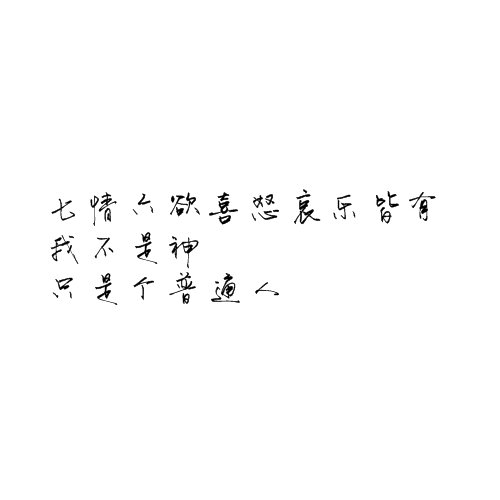 七情六欲喜怒哀乐皆有
我不是神
只是个普通人